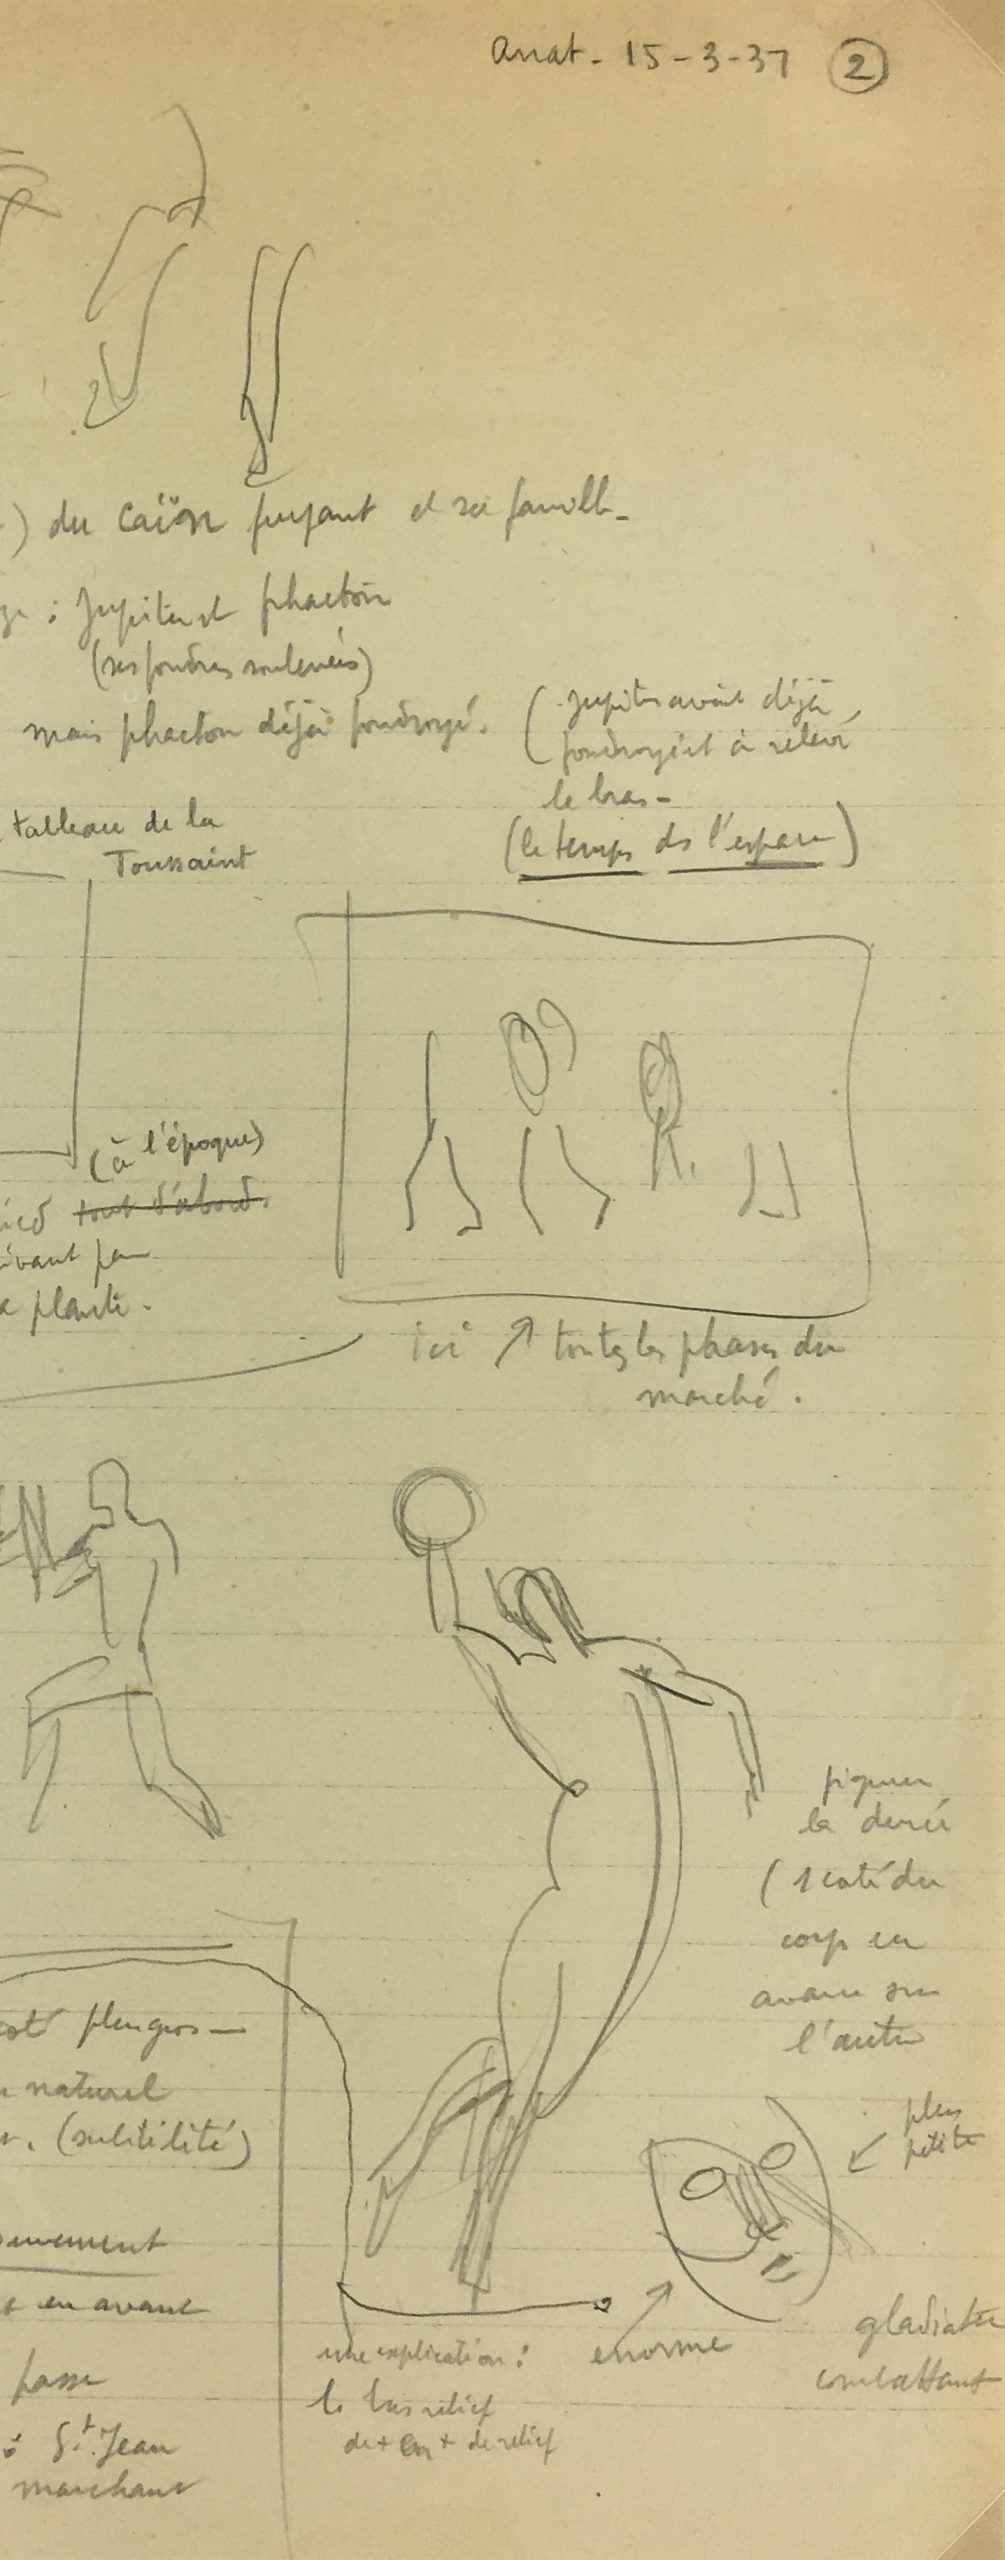 Anat - 15-3-37 (2)
) du Caïn fuyant et sa famill-
: Jupiter et phaeton
(ses foudres soulevées)
mais phaeton déjà foudroyé.
(Jupiter avait déjà
foudroyé et a relevé
le bras -
(le temps ds l'espace)
tableau de la
Toussaint
(à l'époque)
tout d'abord.
plante.
ici ↗ toutes les phases du
marché.
figurer
la durée
(1 coté du
corp en
avance sur
l'autre
plus gros -
naturel
(subtilité)
plus
petite
en avant
passe
à St. Jean
marchant
une explication :
le bas relief
de + en + de relief
enorme
gladiateur
combattant